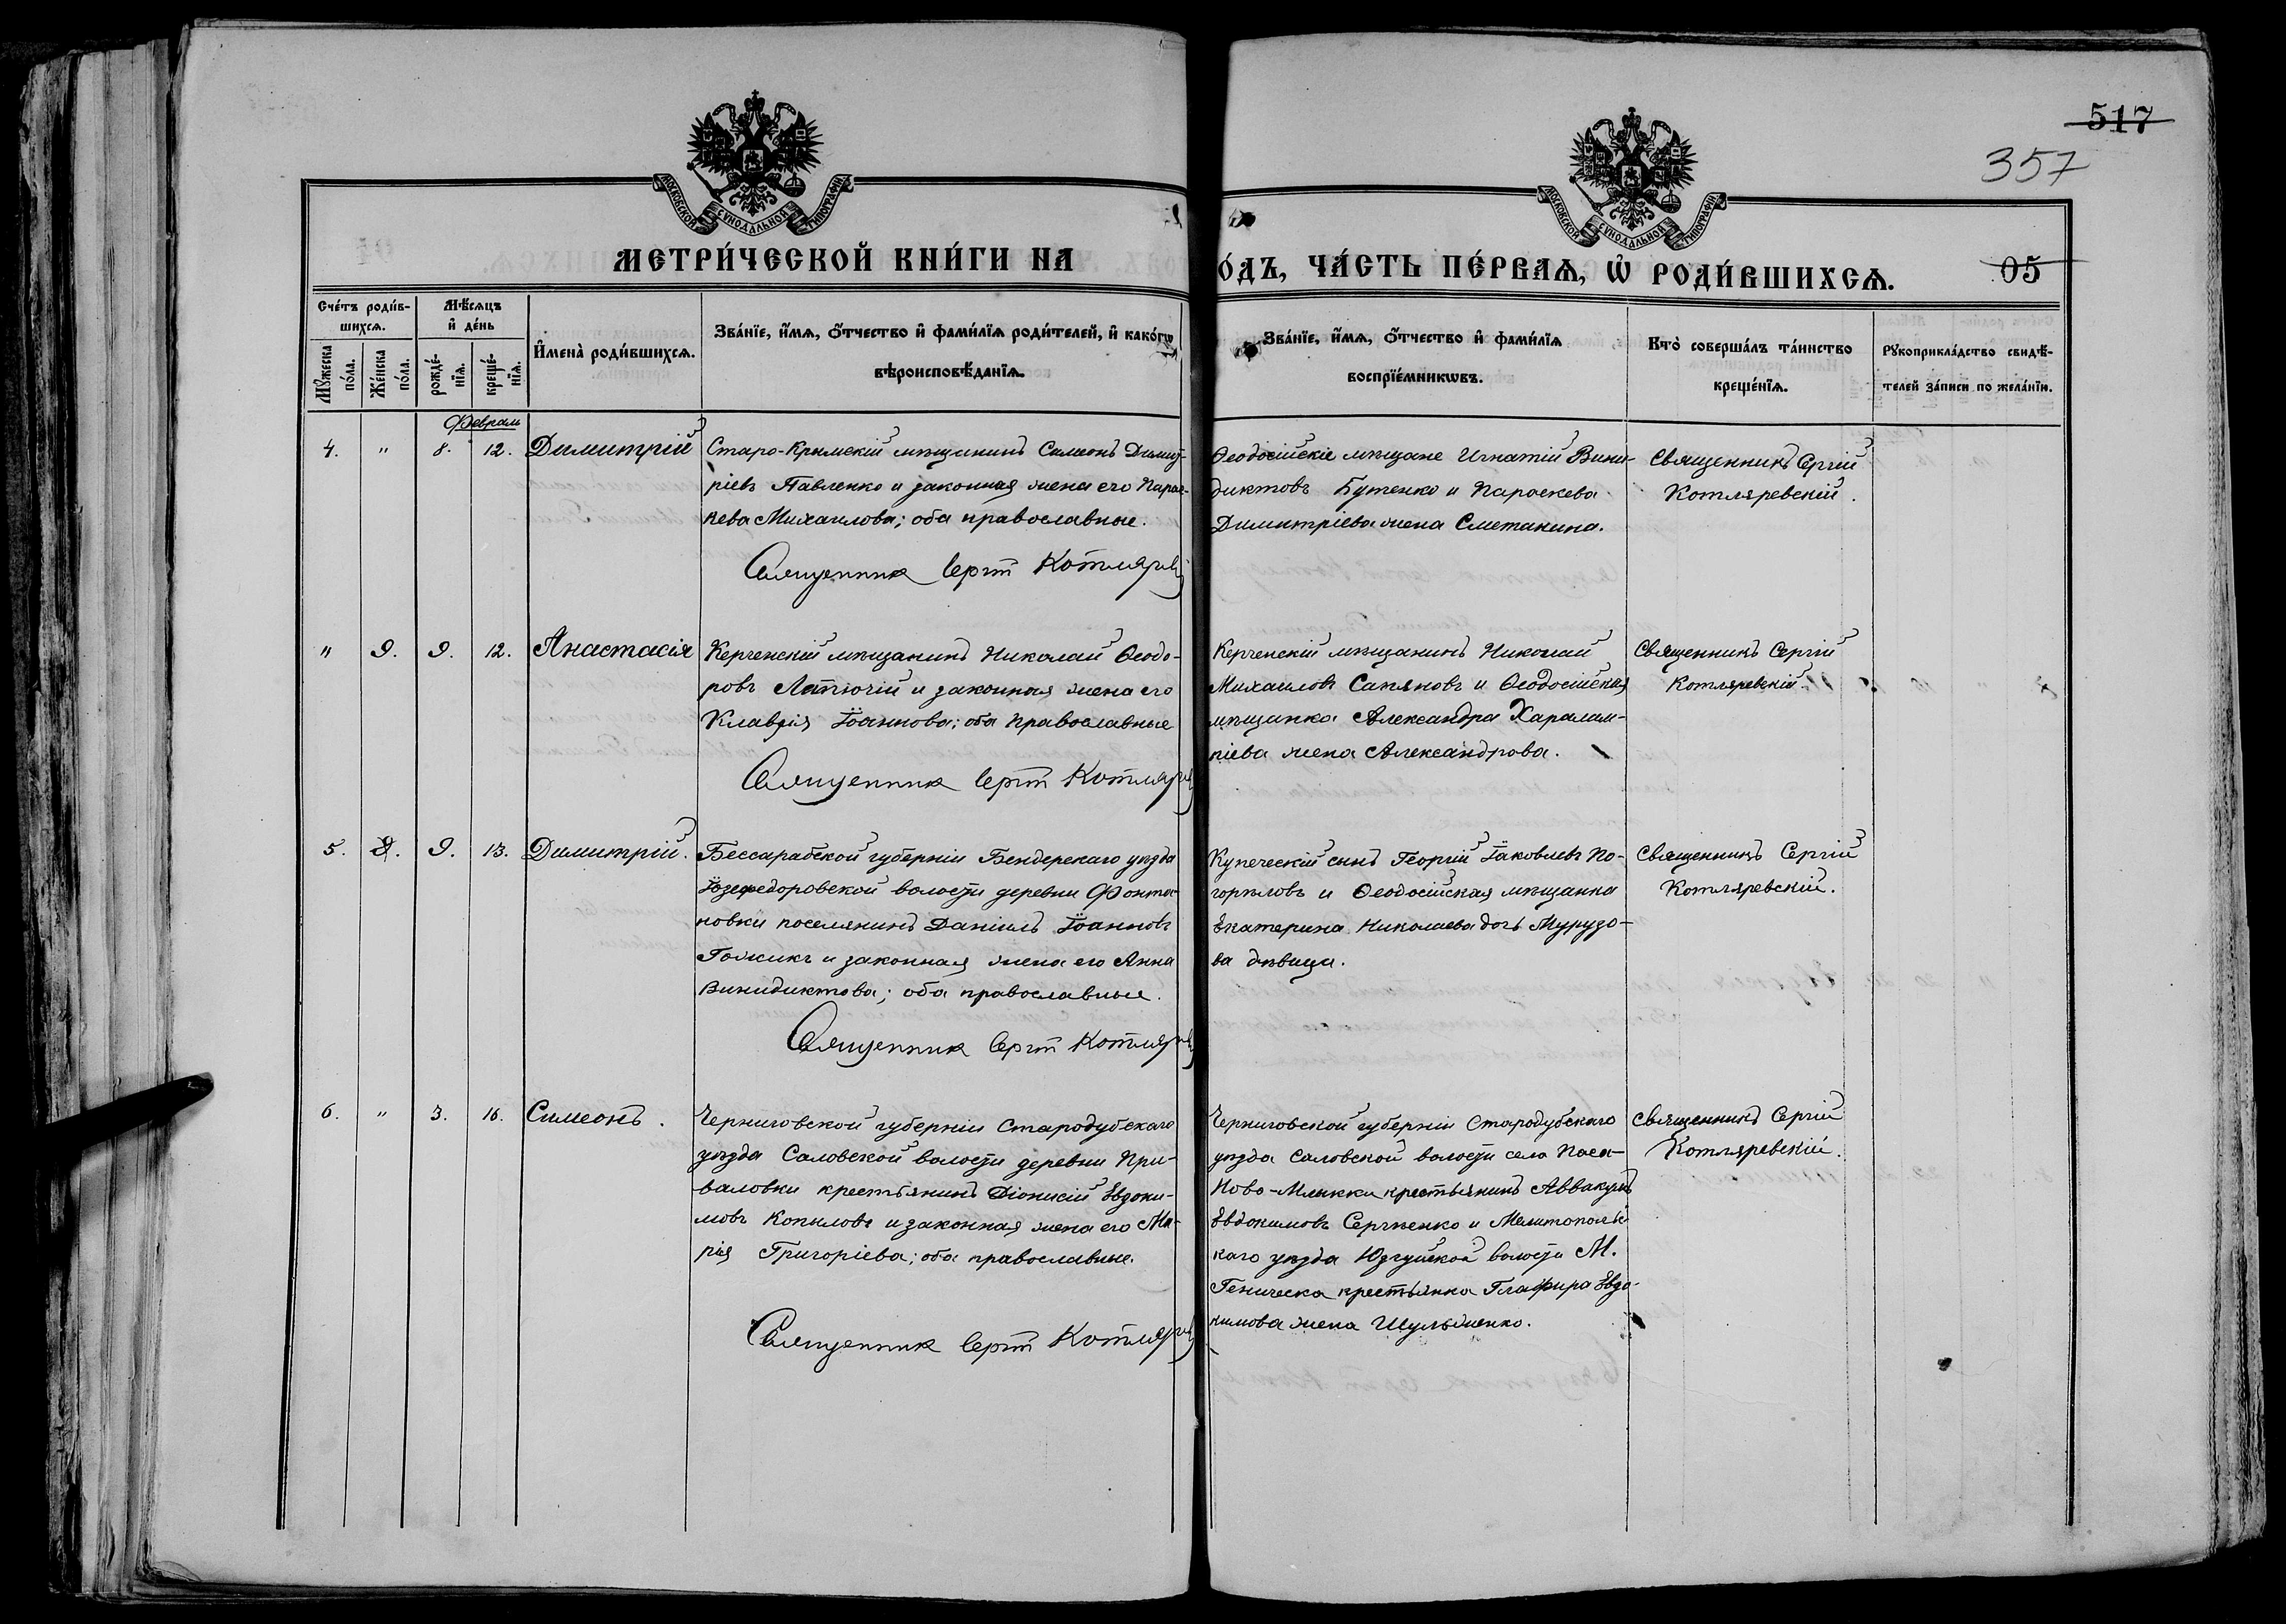 517
357
МОСКОВСКОЙ СУНОДАЛЬНОЙ ТИПОГРАФІИ
МОСКОВСКОЙ СУНОДАЛЬНОЙ ТИПОГРАФІИ
МЕТРИ́ЧЕСКОЙ КНИ́ГИ НА
О́ДЪ, ЧА́СТЬ ПЕ́РВАѦ, Ѡ҆ РОДИ́ВШИХСѦ.
05
Сче́тъ роди́в-
шихсѧ.
Мѣ́сѧцъ
и҆ де́нь
Мꙋ́жеска по́ла.
Же́нска по́ла.
рожде́-
нїѧ.
креще́-
нїѧ.
И҆мена̀ роди́вшихсѧ.
Зва́нїе, и҆́мѧ, ѻ҆́тчество и҆ фами́лїѧ роди́телей, и҆ како́гѡ
вѣроисповѣ́данїѧ.
Зва́нїе, и҆́мѧ, ѻ҆́тчество и҆ фами́лїѧ
воспрїе́мникѡвъ.
Кто̀ соверша́лъ та́инство
креще́нїѧ.
Рꙋкоприкла́дство свидѣ́-
телей за́писи по жела́нїю.
Февраль
4. " 8. 12. Димитрій
Старо-Крымскій мѣщанинъ Симеонъ Димит-
ріевъ Павленко и законная жена его Парас-
кева Михаилова; оба православные.
Священник Сергій Котляревскій
Ѳеодосійскіе мѣщане Игнатій Вини-
диктовъ Бутенко и Параскева
Димитріева жена Сметанина.
Священникъ Сергій
Котляревскій.
" 9. 9. 12. Анастасія
Керченскій мѣщанинъ Николай Ѳеодо-
ровъ Латючій и законная жена его
Клавдія Іоаннова; оба православные
Священник Сергій Котляревскій
Керченскій мѣщанинъ Николай
Михаиловъ Сапяновъ и Ѳеодосійская
мѣщанка Александра Харалам-
піева жена Александрова.
Священникъ Сергій
Котляревскій.
5. 9. 13. Димитрій.
Бессарабской губерніи Бендерскаго уѣзда
Іозефедоровской волости деревни Фонта-
новки поселянинъ Даніилъ Іоанновъ
и законная жена его Анна
Винидиктова; оба православные.
Священник Сергій Котляревскій
Купеческій сынъ Георгій Іаковлевъ По-
горѣловъ и Ѳеодосійская мѣщанка
Екатерина Николаева дочь Мурузо-
ва дѣвица.
Священникъ Сергій
Котляревскій.
6. " 3. 16. Симеонъ.
Черниговской губерніи Стародубскаго
уѣзда Саловской волости деревни При-
валовки крестьянинъ Діонисій Евдоки-
мовъ Копыловъ и законная жена его Ма-
рія Григоріева; оба православные.
Священник Сергій Котляревскій
Черниговской губерніи Стародубскаго
уѣзда Саловской волости села
Ново-Млынки крестьянинъ Аввакумъ
Евдокимовъ Сергѣенко и Мелитопольс-
каго уѣзда волости М.
Геническа крестьянка Глафира Евдо-
кимова жена Шульженко.
Священникъ Сергій
Котляревскій.